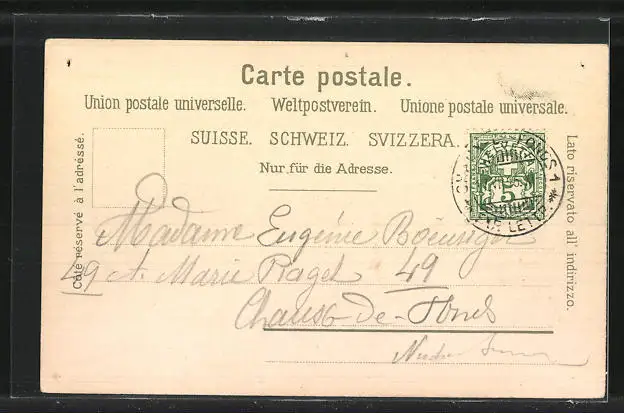 Carte postale.
Union postale universelle. Weltpostverein. Unione postale universale.
SUISSE. SCHWEIZ. SVIZZERA.
Nur für die Adresse.
Côté réservé à l'adresse.
Lato riservato all' indirizzo.
HELVETIA
5
FONDS 1
LET
Madame Eugénie
49 A. Marie Piaget 49
Chaux-de-Fonds